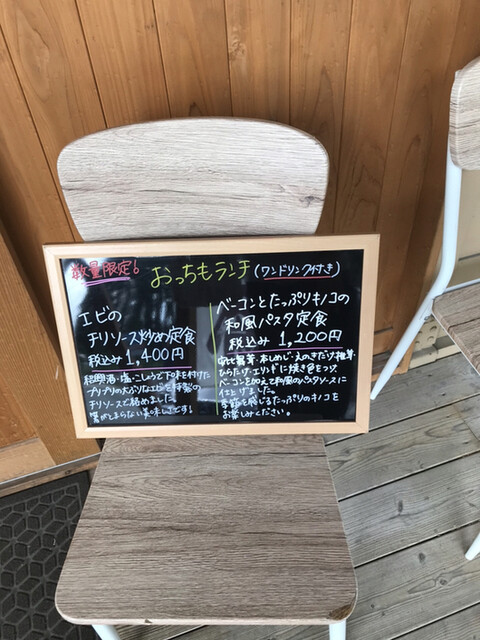 数量限定!
おっちもランチ(ワンドリンク付き)
エビの
チリソース炒め定食
税込み1,400円
紹興酒・塩・こしょうで下味を付けた
プリプリの大ぶりなエビを特製の
チリソースで絡めました。
箸がとまらない美味しさです!
ベーコンとたっぷりキノコの
和風パスタ定食
税込み 1,200円
本しめじ・えのきだけ・椎茸
ひらたけ・エリンギに焼き色をつけ
ベーコンを加えて和風のパスタソースに
仕上げました。
季節を感じるたっぷりのキノコを
お楽しみください。